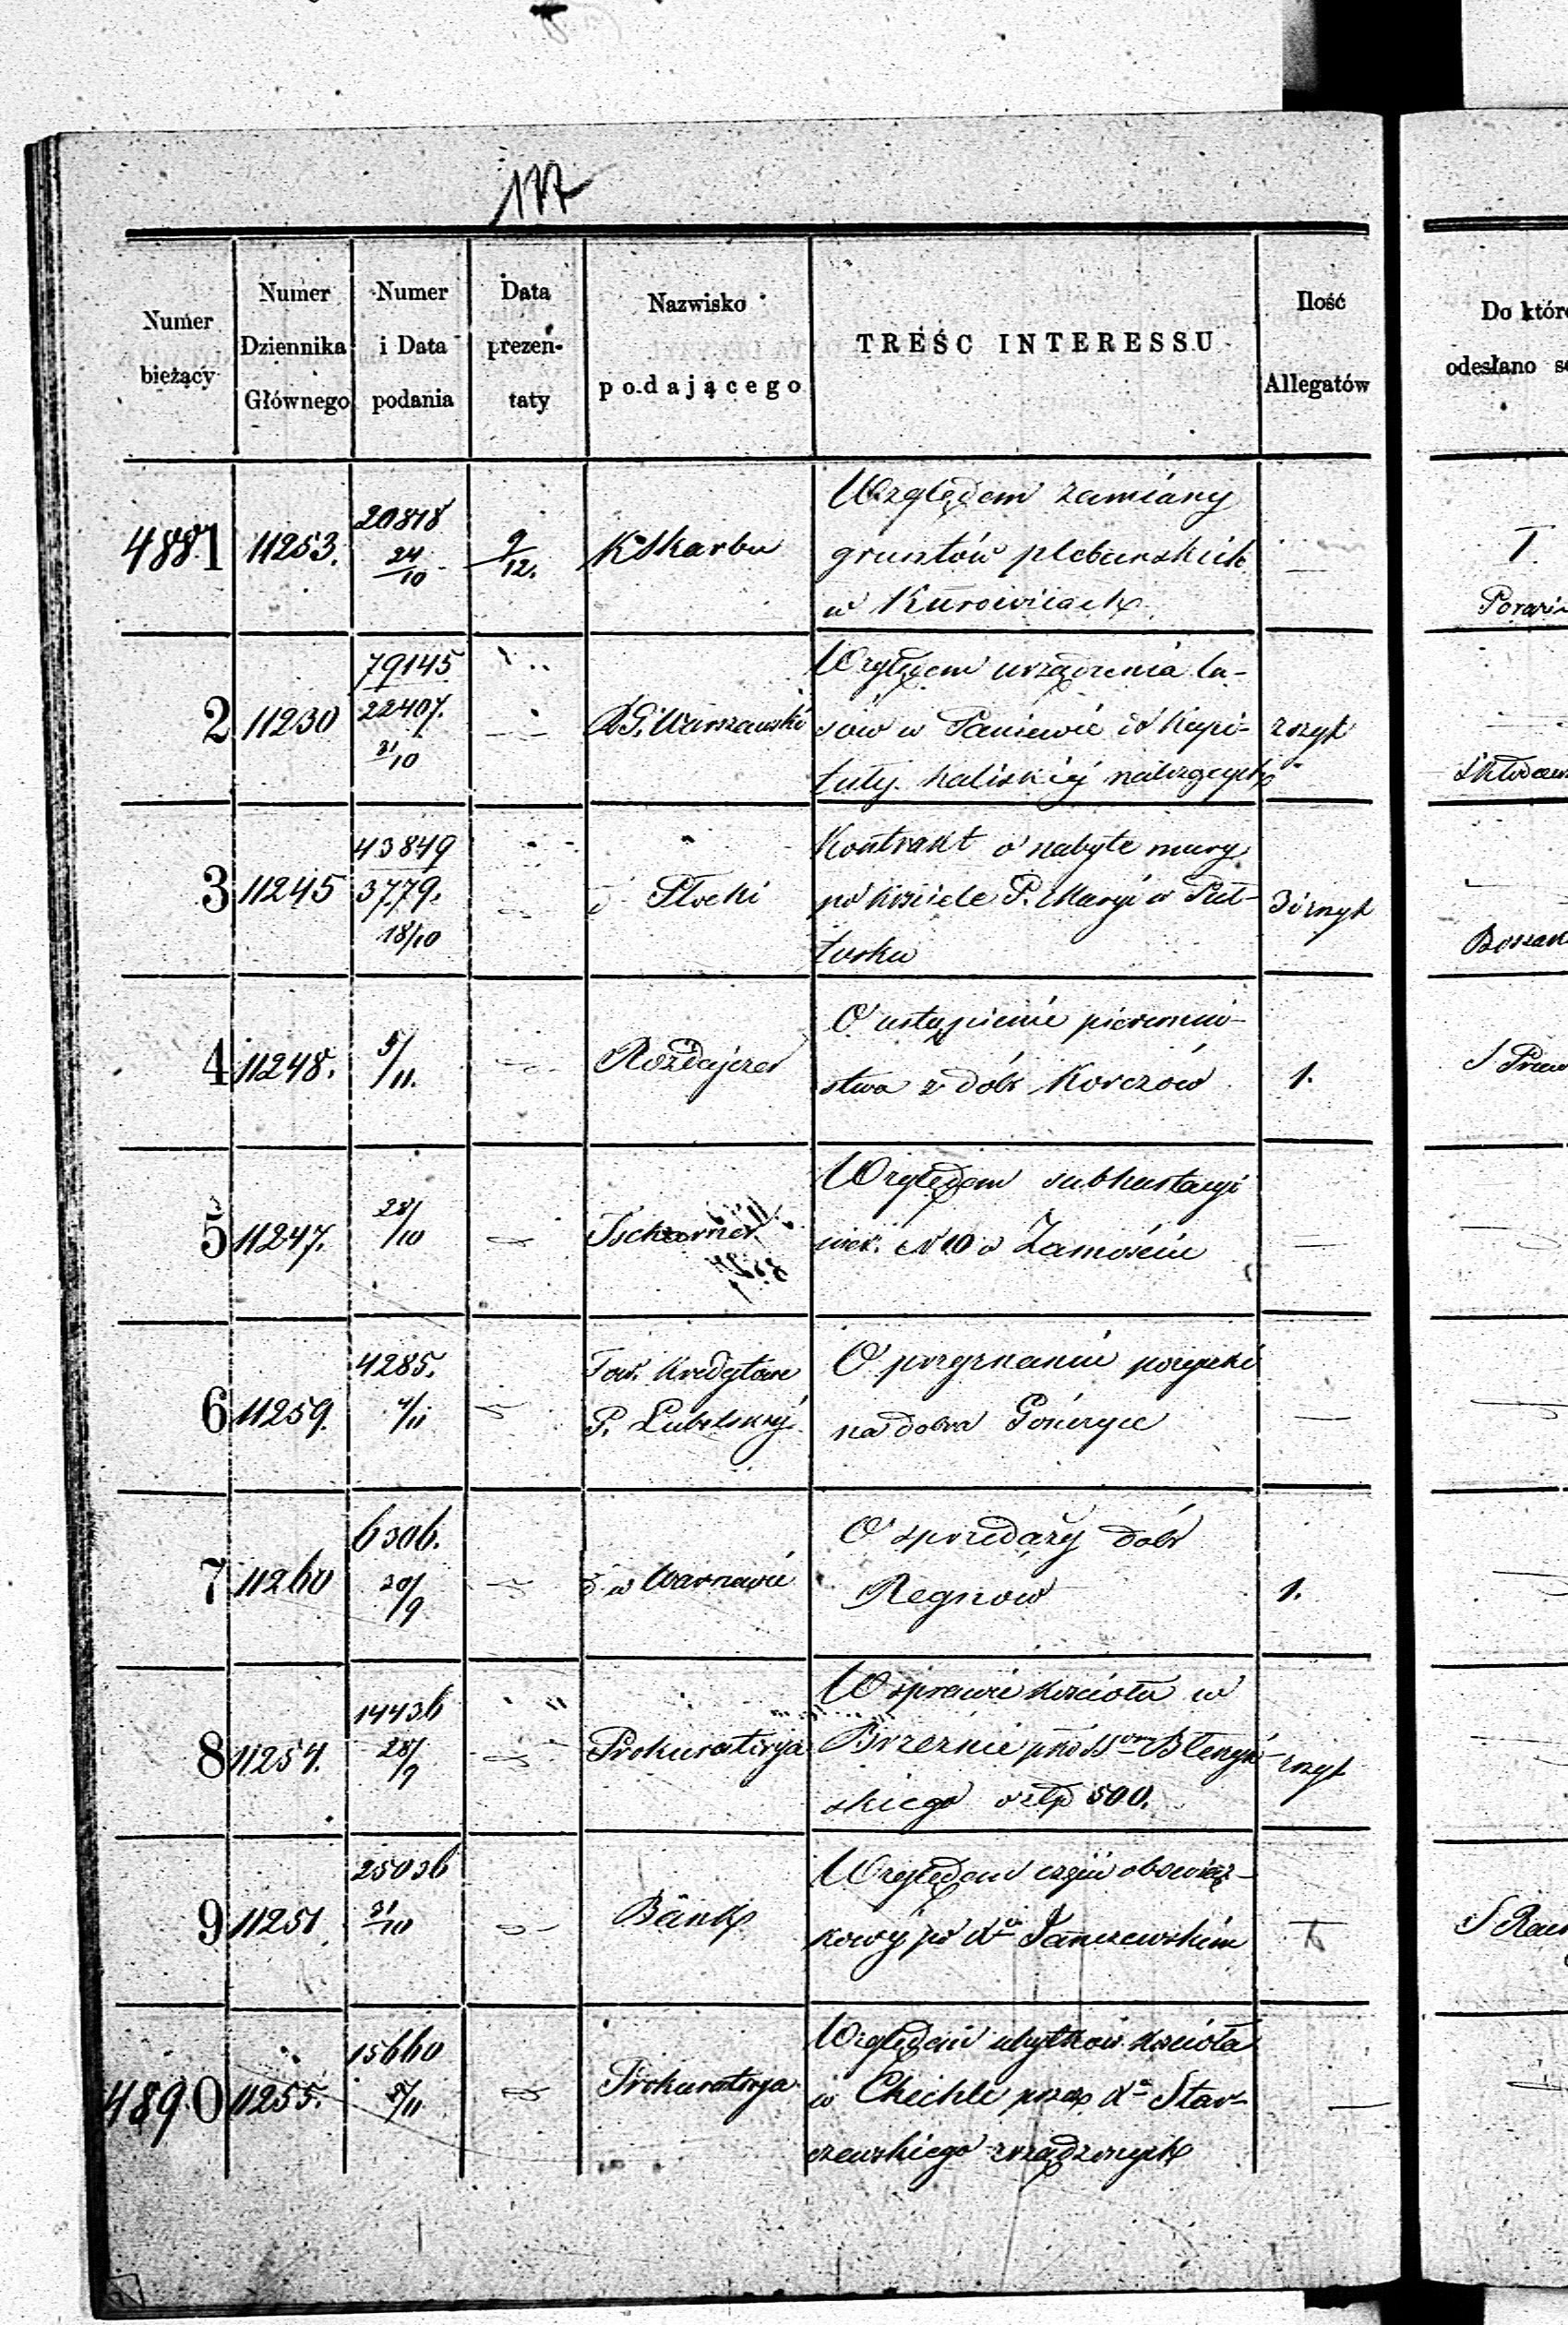 177
Numer bieżący
Numer Dziennika Głównego
Numer i Data podania
Data prezen-taty
Nazwisko podającego
TREŚC INTERESSU
Ilość Allegatów
Do któr
odesłano
4881 11253. 20818 24/10 9/12. K. Skarbu
Względem zamiany
gruntów plebańskich
w Kurowicach
T.
2 11230 79145 22407. 31/10 R. G. Warszawski
Względem urządzenia la-
sów w Paniewie do Kapi-
tuły kaliskiéj należących
zszyt
3 11245 43849 3779. 18/10 Płocki
Kontrakt o nabyte mury
po kościele P. Maryi w Puł-
tusku
3 i zszyt
4 11248. 5/11. Rożdajczer
O ustąpienie pierwszeń-
stwa z dóbr Korczów
1.
5 11247. 28/10 Tscharner
Względem subhastacyi
nier. N 10 w Zamościu
6 11259. 4285. 4/11
Tow. Kredytowe
P. Lubelskiéj
O przyznaniu pożyczki
na dobra Gończyce
7 11260 6306. 20/9 w Warszawie
O sprzedaży dóbr
Regnow
1.
8 11254. 14436 28/9 Prokuratorya
W sprawie kościoła w
Brzeźnie pko SSrom Błeszyń-
skiego o złp 500.
zszyt
9 11251 25036 31/10 Bank
Względem części obowiąz-
kowéj po Janczewskim
4890 11255. 15660 5/11 Prokuratorya
Względem ubytków kościoła
w Chechle przez Xa Star-
czewskiego zrządzonych